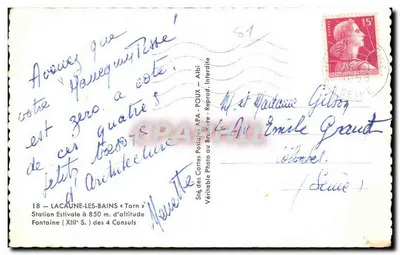 Avouez que
votre Mannequin Pissé!
est zéro à côté.
de ces quatre s
petits
d'Architecture
Nenette
18 - LACAUNE-LES-BAINS « Tarn »
Station Estivale à 850 m. d'altitude
Fontaine ( XIIIe S. ) des 4 Consuls
Sté des Cartes Postales APA - POUX - Albi
Véritable Photo au Bromure - Reprod. Interdite
51
15
SEINE
M. et Madame Gilson
Av Emile Grand
Colombes
(Seine)